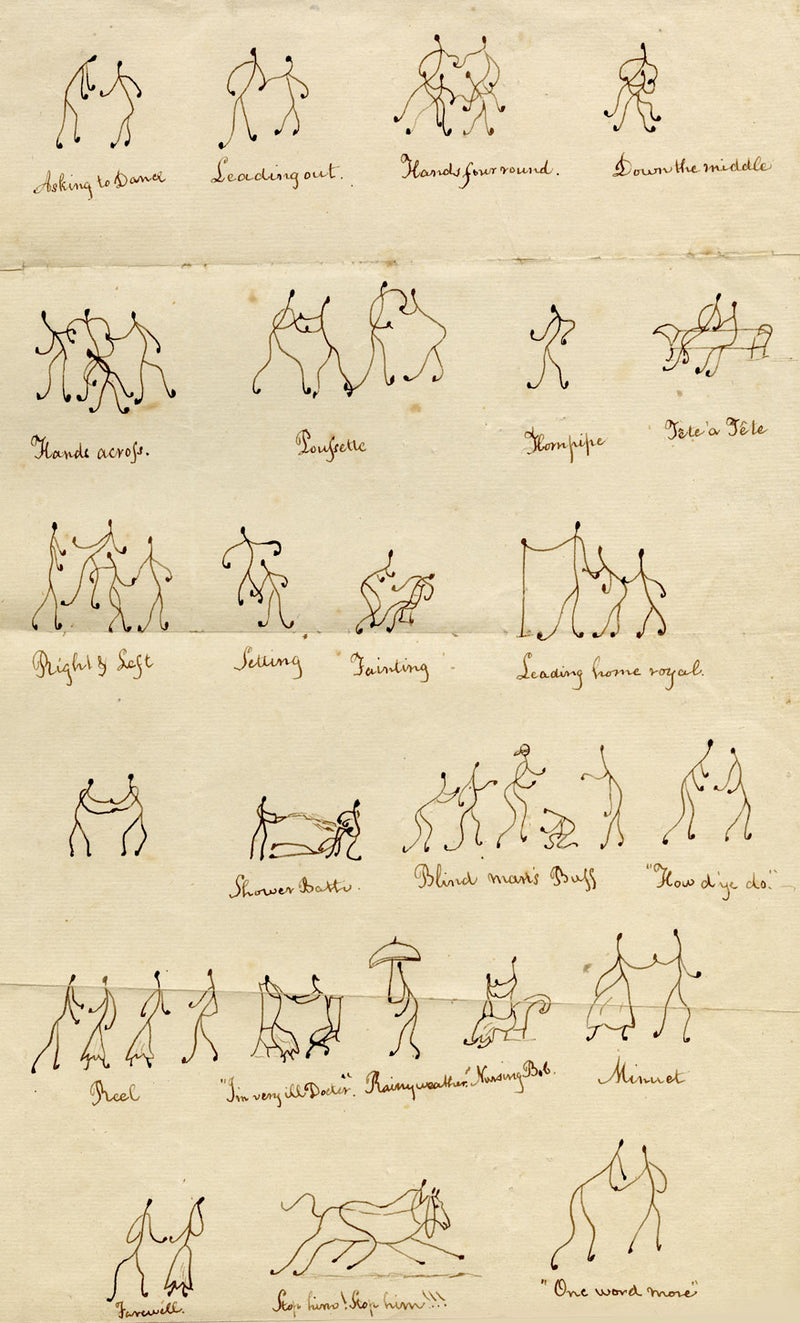 Asking to Dance
Leading out.
Hands four round.
Down the middle
Hands across.
Poussette
Hornpipe
Tête a Tête
Right & Left
Setting
Fainting
Leading home royal.
Shower Bath.
Blind man's Buff
"How d'ye do."
Reel
"I'm very ill Doctor".
Rainy weather.
Nursing Bob.
Minuet
Farewell.
Stop him! Stop him!!!!
"One word more"